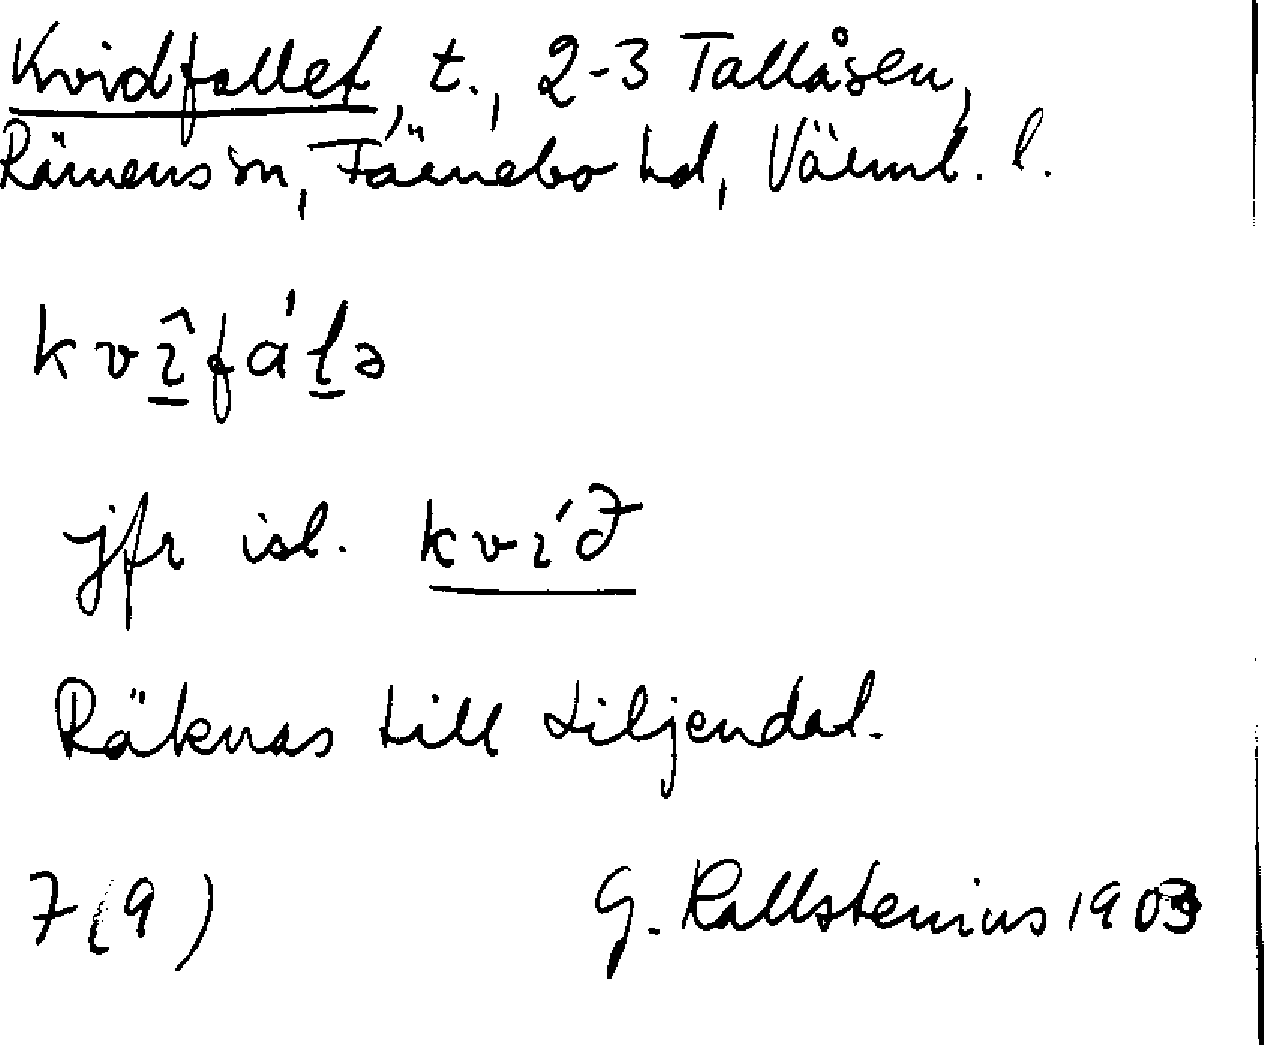 Kvidfallet, t., 2-3 Tallåsen,
Rämens sn, Färnebo hd, Värml. l.
kvîfál̠ə
jfr isl. kvíð
Räknas till Liljendal.
7(9) G. Kallstenius 1903